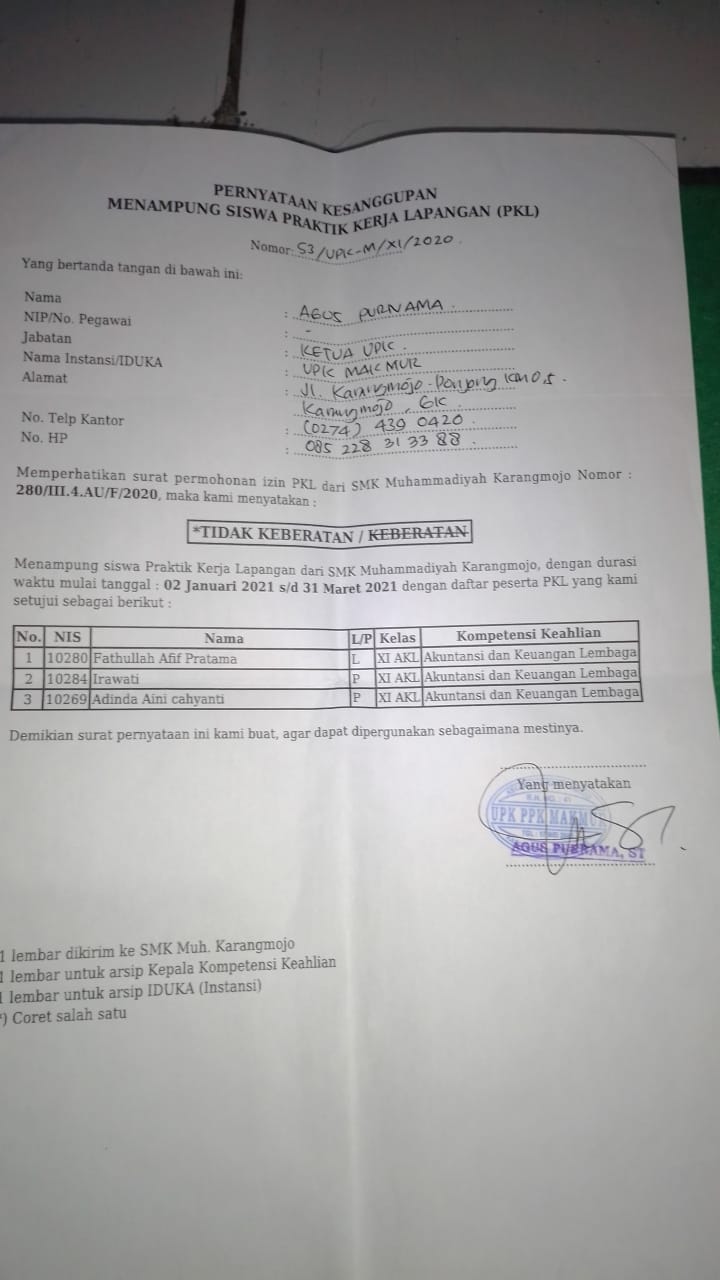 PERNYATAAN KESANGGUPAN
MENAMPUNG SISWA PRAKTIK KERJA LAPANGAN (PKL)
Nomor: 53/UPK-M/XI/2020.
Yang bertanda tangan di bawah ini:
Nama : AGUS PURNAMA.
NIP/No. Pegawai : -
Jabatan : KETUA UPK.
Nama Instansi/IDUKA : UPK MAKMUR
Alamat : Jl. Karangmojo - Ponjong KM 0,5.
Karangmojo, GK.
No. Telp Kantor : (0274) 439 0420.
No. HP : 085 228 31 33 88.
Memperhatikan surat permohonan izin PKL dari SMK Muhammadiyah Karangmojo Nomor :
280/III.4.AU/F/2020, maka kami menyatakan :
*TIDAK KEBERATAN / KEBERATAN
Menampung siswa Praktik Kerja Lapangan dari SMK Muhammadiyah Karangmojo, dengan durasi
waktu mulai tanggal : 02 Januari 2021 s/d 31 Maret 2021 dengan daftar peserta PKL yang kami
setujui sebagai berikut :
No. NIS Nama L/P Kelas Kompetensi Keahlian
1 10280 Fathullah Afif Pratama L XI AKL Akuntansi dan Keuangan Lembaga
2 10284 Irawati P XI AKL Akuntansi dan Keuangan Lembaga
3 10269 Adinda Aini cahyanti P XI AKL Akuntansi dan Keuangan Lembaga
Demikian surat pernyataan ini kami buat, agar dapat dipergunakan sebagaimana mestinya.
Yang menyatakan
UPK PPK MAKMUR
AGUS PURNAMA, ST
1 lembar dikirim ke SMK Muh. Karangmojo
1 lembar untuk arsip Kepala Kompetensi Keahlian
1 lembar untuk arsip IDUKA (Instansi)
*) Coret salah satu